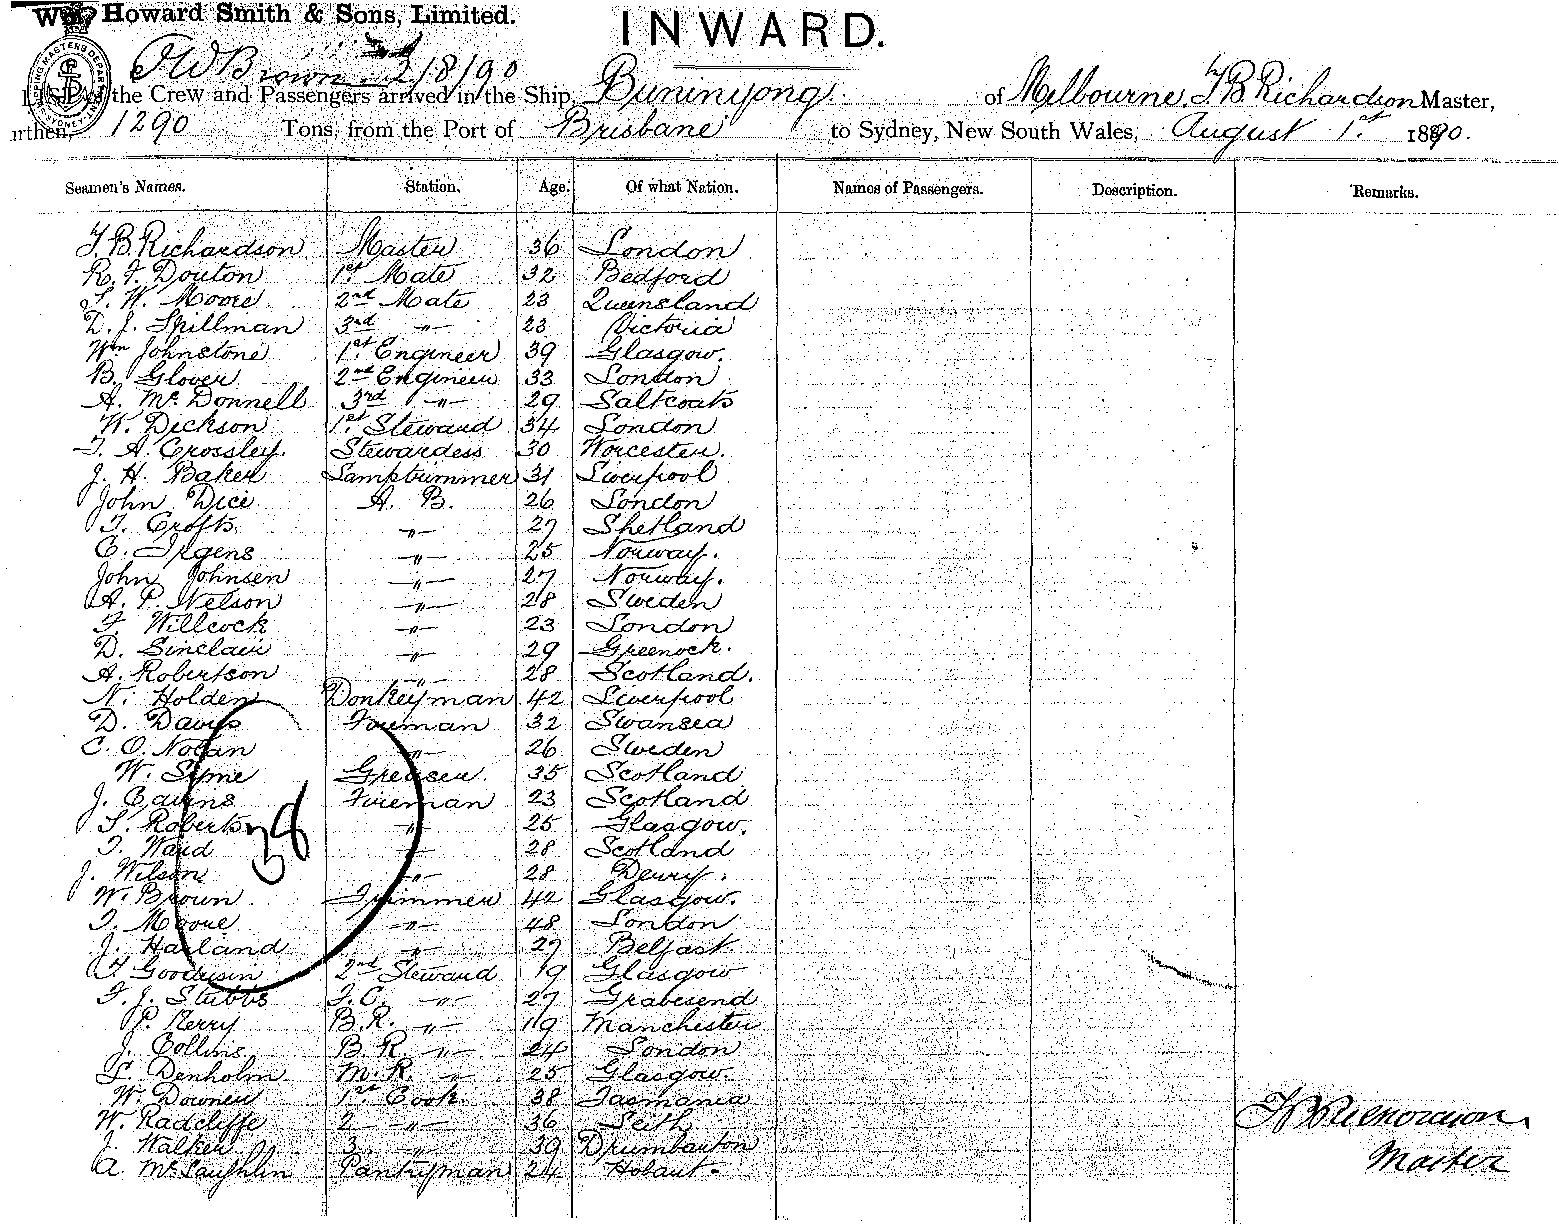 Wm Howard Smith & Sons, Limited.
INWARD.
J W Brown 2/8/90
of the Crew and Passengers arrived in the Ship, Buninyong of Melbourne, T B Richardson Master,
urthen, 1290 Tons, from the Port of Brisbane to Sydney, New South Wales, August 1st 1890.
Seamen's Names. Station. Age. Of what Nation. Names of Passengers. Description. Remarks.
T. B. Richardson Master 36 London
R. J. Douton 1st Mate 32 Bedford
S. W. Moore 2nd Mate 23 Queensland
D. J. Spillman 3rd -"- 23 Victoria
Wm Johnstone 1st Engineer 39 Glasgow.
B. Glover 2nd Engineer 33 London
A. McDonnell 3rd -"- 29 Saltcoats
W. Dickson 1st Steward 34 London
T. A. Crossley. Stewardess 30 Worcester.
J. H. Baker Lamptrimmer 31 Liverpool
John Dice A. B. 26 London
T. Crofts -"- 27 Shetland
C. Irgens -"- 25 Norway.
John Johnsen -"- 27 Norway.
A. P. Nelson -"- 28 Sweden
F. Willcock -"- 23 London
D. Sinclair -"- 29 Greenock.
A. Robertson -"- 28 Scotland.
N. Holden Donkeyman 42 Liverpool
D. Davis Fireman 32 Swansea
C. O. Nolan -"- 26 Sweden
W. Syme Greaser 35 Scotland
J. Cairns Fireman 23 Scotland
S. Roberts -"- 25 Glasgow.
T. Ward -"- 28 Scotland
38
J. Wilson -"- 28 Derry.
W. Brown Trimmer 42 Glasgow.
T. Moore -"- 48 London
J. Harland -"- 27 Belfast
T. Goodwin 2nd Steward 19 Glasgow
F. J. Stubbs F.C. -"- 27 Gravesend
P. Kerry B.R. -"- 19 Manchester
J. Collins B.R. -"- 24 London
S. Denholm M.R. -"- 25 Glasgow.
W. Downer 1st Cook 38 Tasmania
W. Radcliffe 2 -"- 36 Leith
J. Walker 3 -"- 39 Drumbarton
A. McLaughlin Pantryman 24 Hobart.
T B Richardson
Master